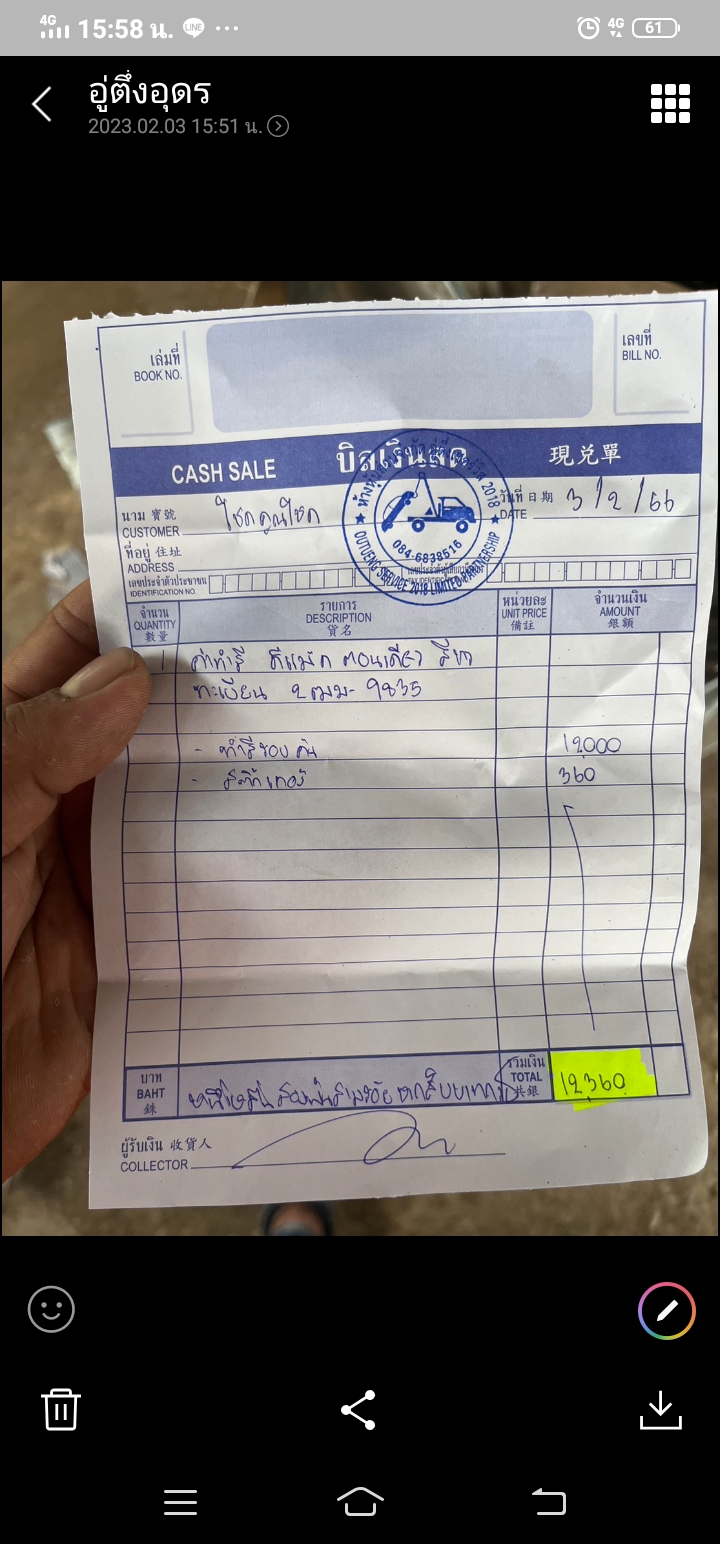 4G 15:58 น. LINE 4G 61
อู่ตึ๋งอุดร
2023.02.03 15:51 น.
เล่มที่
BOOK NO.
เลขที่
BILL NO.
CASH SALE บิลเงินสด 現兑單
นาม 寳號
CUSTOMER โชคคูณโชค
วันที่ 日期
DATE 3/2/66
ที่อยู่ 住址
ADDRESS
เลขประจำตัวประชาชน
IDENTIFICATION NO.
2018
084-6838516
OUTUENG SERVICE 2018 LIMITED PARTNERSHIP
จำนวน
QUANTITY
數量
รายการ
DESCRIPTION
貨名
หน่วยละ
UNIT PRICE
備註
จำนวนเงิน
AMOUNT
銀額
1 ค่าทำสี ดีแม็ก ตอนเดียว สีขาว
ทะเบียน 9835
- ทำสีรอบคัน 12000
- สติ๊กเกอร์ 360
บาท
BAHT
銖
หนึ่งหมื่นสองพันสามร้อยหกสิบบาท
รวมเงิน
TOTAL
共銀
12,360
ผู้รับเงิน 收貨人
COLLECTOR